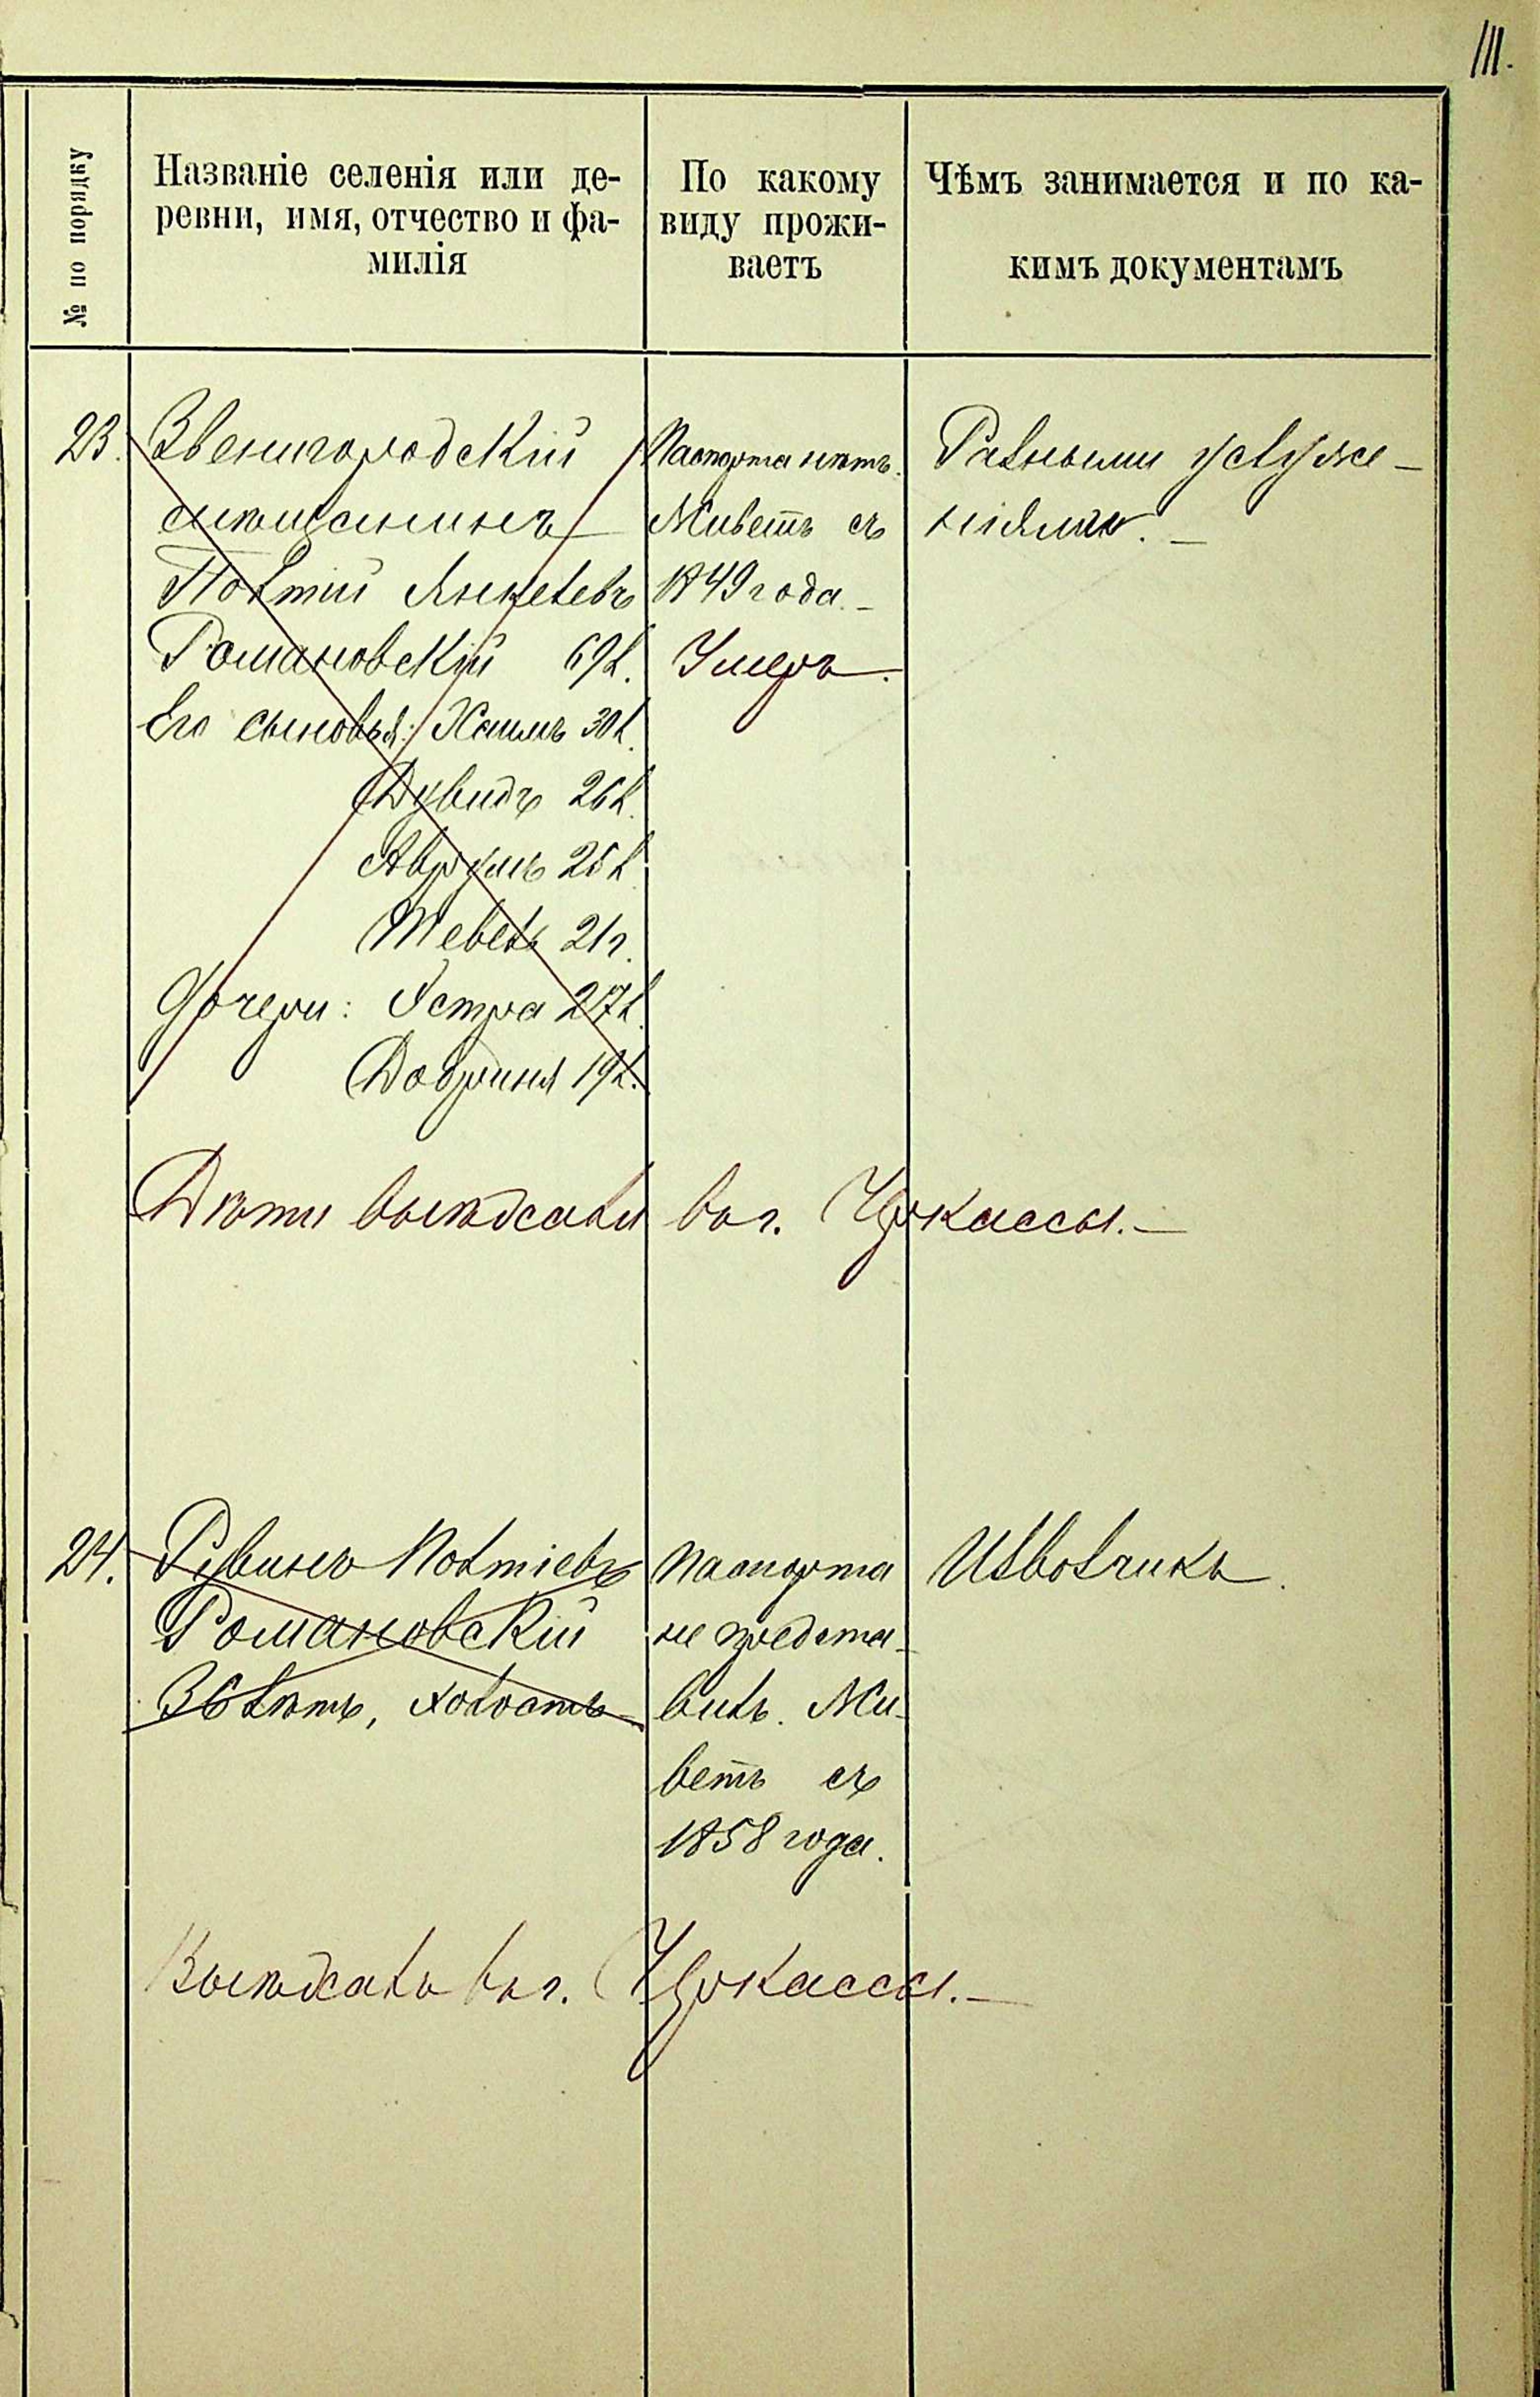 111.
№ по порядку
Названіе селенія или де-
ревни, имя, отчество и фа-
милія
По какому
виду прожи-
ваетъ
Чѣмъ занимается и по ка-
кимъ документамъ
23.
Звенигородскій
мѣщанинъ
Янкелевъ
Романовскій 69 л.
Его сыновья: Хаимъ 30 л.
Дувидъ 26 л.
Аврумъ 25 л.
Тевель 21 г.
Дочери: Эстра 27 л.
Добриня 19 л.
Паспорта нѣтъ.
Живетъ съ
1849 года. –
Умеръ.
Разными услуже-
ніями. –
Дѣти выѣхали въ г. Черкассы. –
24.
Рувинъ
Романовскій
36 лѣтъ, холостъ
Паспорта
не предста-
вилъ. Жи-
ветъ съ
1858 года.
Извозчикъ.
Выѣхалъ въ г. Черкассы. –